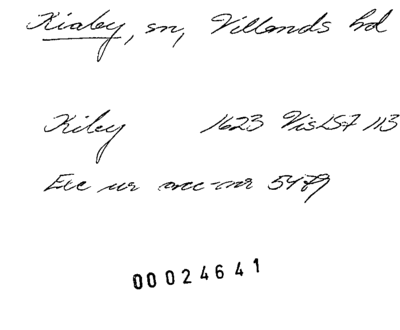 Kiaby, sn, Villands hd
Kiby 1623 VisLSF 113
Exc ur acc-nr 5479
00024641